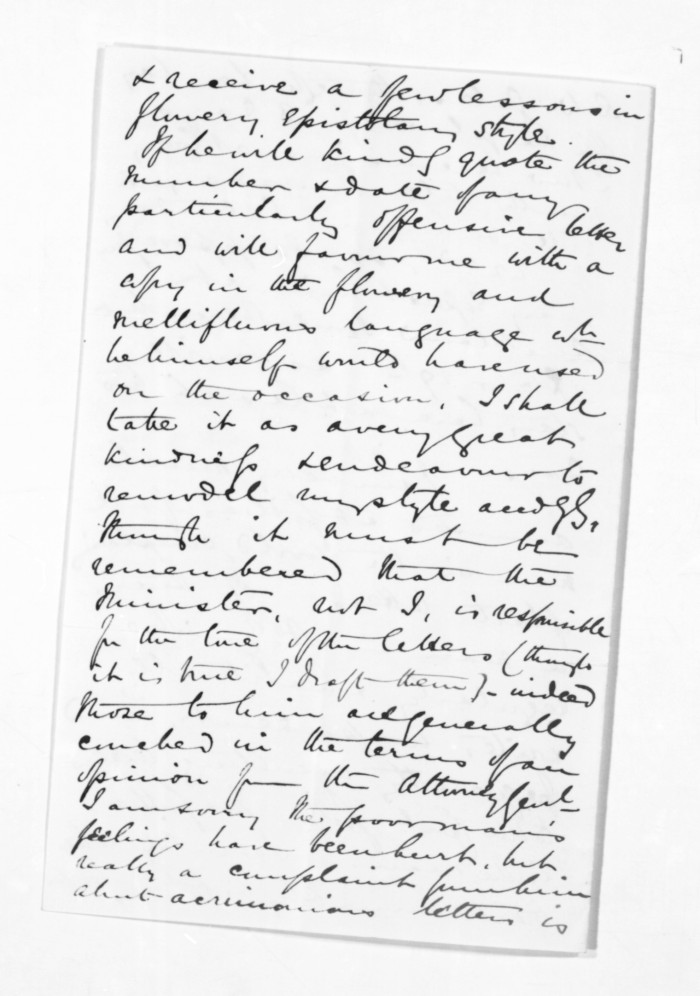 & receive a few lessons in
flowery epistolary style.
If he will kindly quote the
number & date of any letter
particularly offensive
and will favour me with a
copy in the flowery and
mellifluous language wh
he himself would have used
on the occasion, I shall
take it as a very great
kindness & endeavour to
remodel my style accdgly,
though it must be
remembered that the
Minister, not I, is responsible
for the tone of the letters (though
it is true I draft them) - indeed
those to him are generally
couched in the terms of an
opinion from the Attorney Genl
I am sorry the poor man's
feelings have been hurt, but
really a complaint from him
about acrimonious letters is